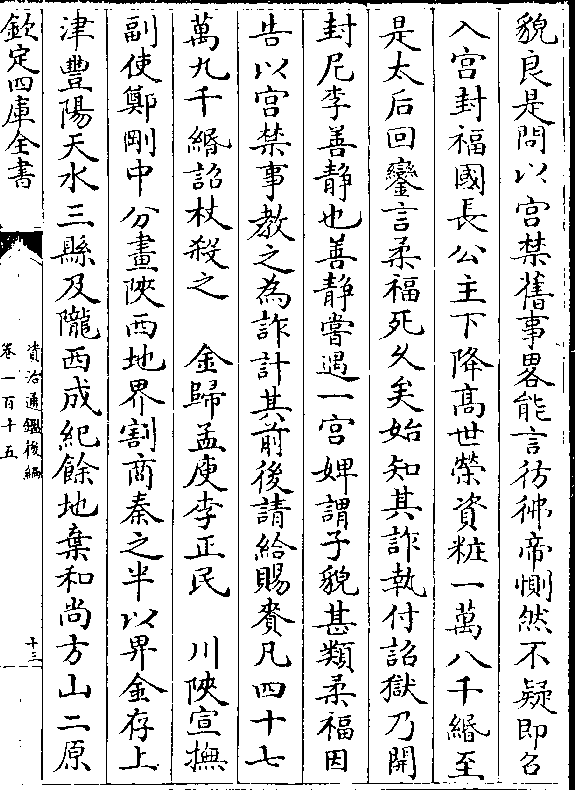 貌良是問以宮禁舊事畧能言彷彿帝惻然不疑即召
入宮封福國長公主下降高世榮資粧一萬八千緡至
是太后回鑾言柔福死久矣始知其詐執付詔獄乃開
封尼李善静也善静嘗遇一宮婢謂子貌甚類柔福因
告以宮禁事教之為詐計其前後請給賜賚凡四十七
萬九千緡詔杖殺之　金歸孟庾李正民　川陜宣撫
副使鄭剛中分畫陜西地界割商秦之半以畀金存上
津豐陽天水三縣及隴西成紀餘地棄和尚方山二原
欽定四庫全書
資治通鑑後編
卷一百十五
十三